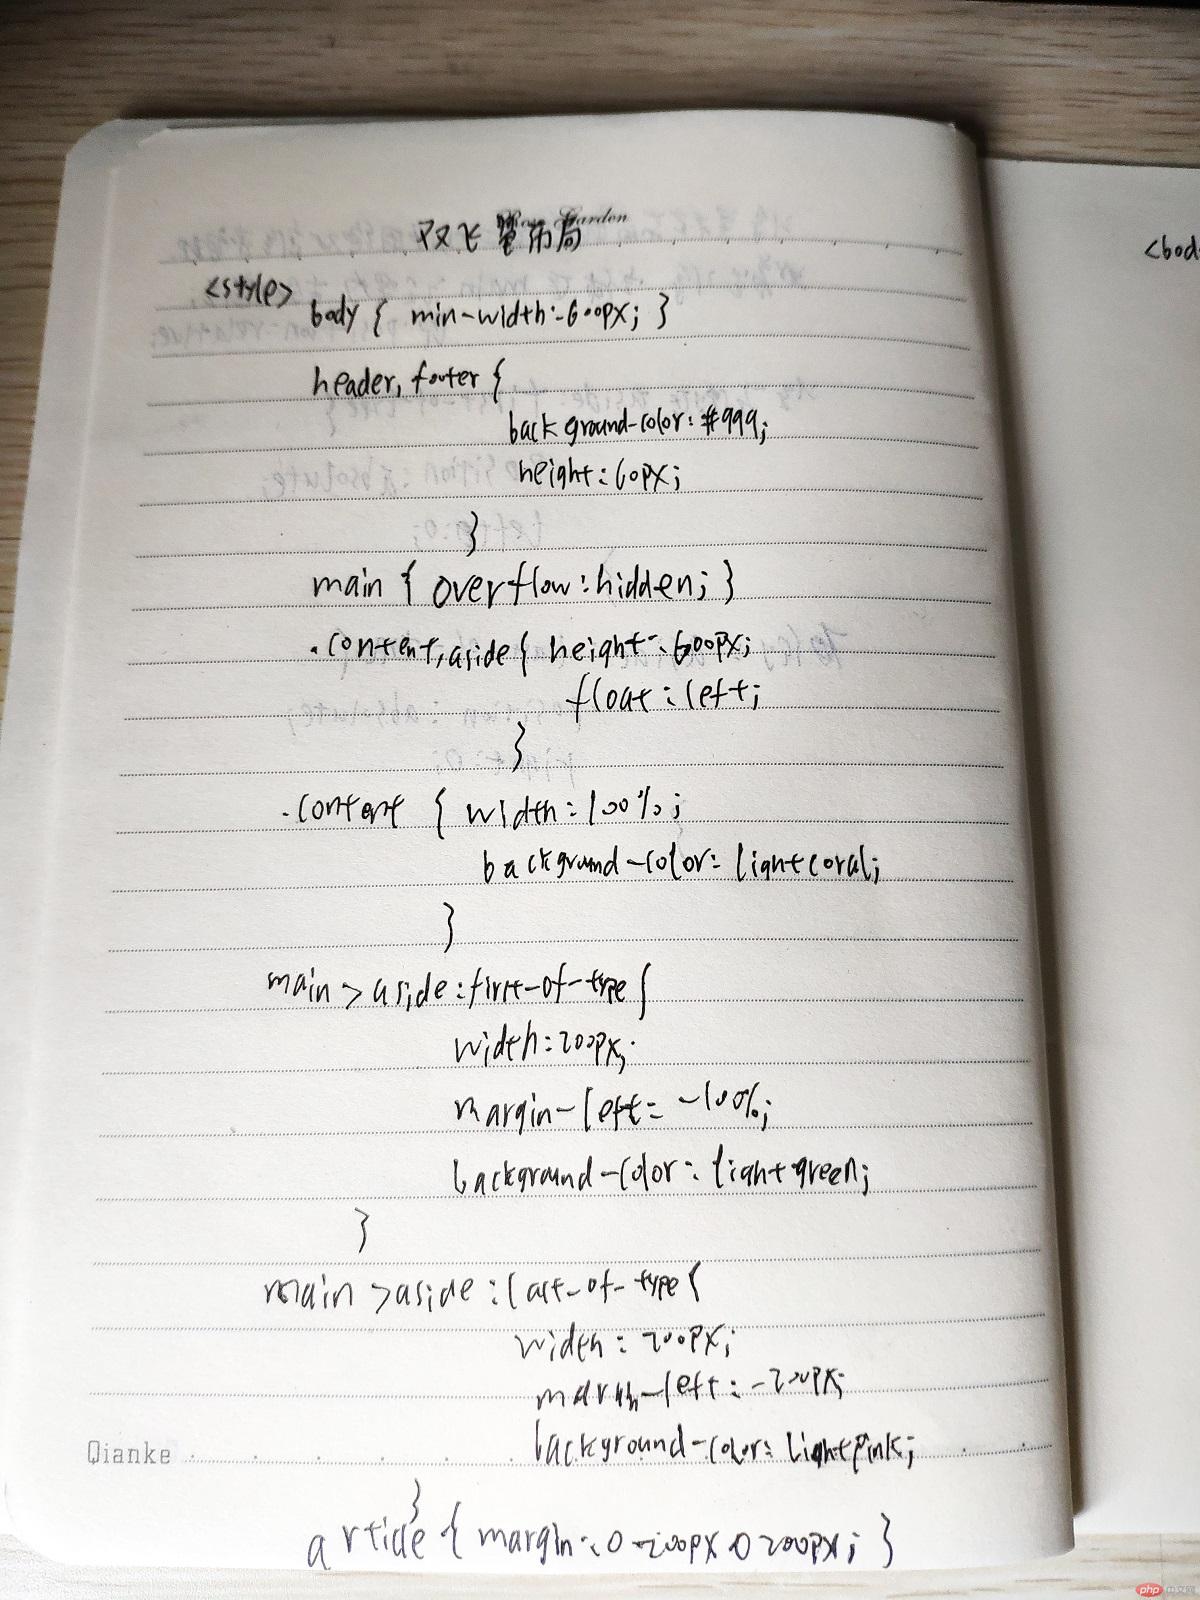 Rose Garden
双飞翼布局
<style>
body { min-width:600px; }
header, footer {
background-color: #999;
height: 60px;
}
main { overflow: hidden; }
.content, aside { height: 600px;
float: left;
}
.content { width: 100%;
background-color: lightcoral;
}
main > aside:first-of-type {
width: 200px;
margin-left: -100%;
background-color: lightgreen;
}
main > aside:last-of-type {
width: 200px;
margin-left: -200px;
background-color: lightpink;
Qianke
}
article { margin: 0 200px 0 200px; }
<bod
php 中文网